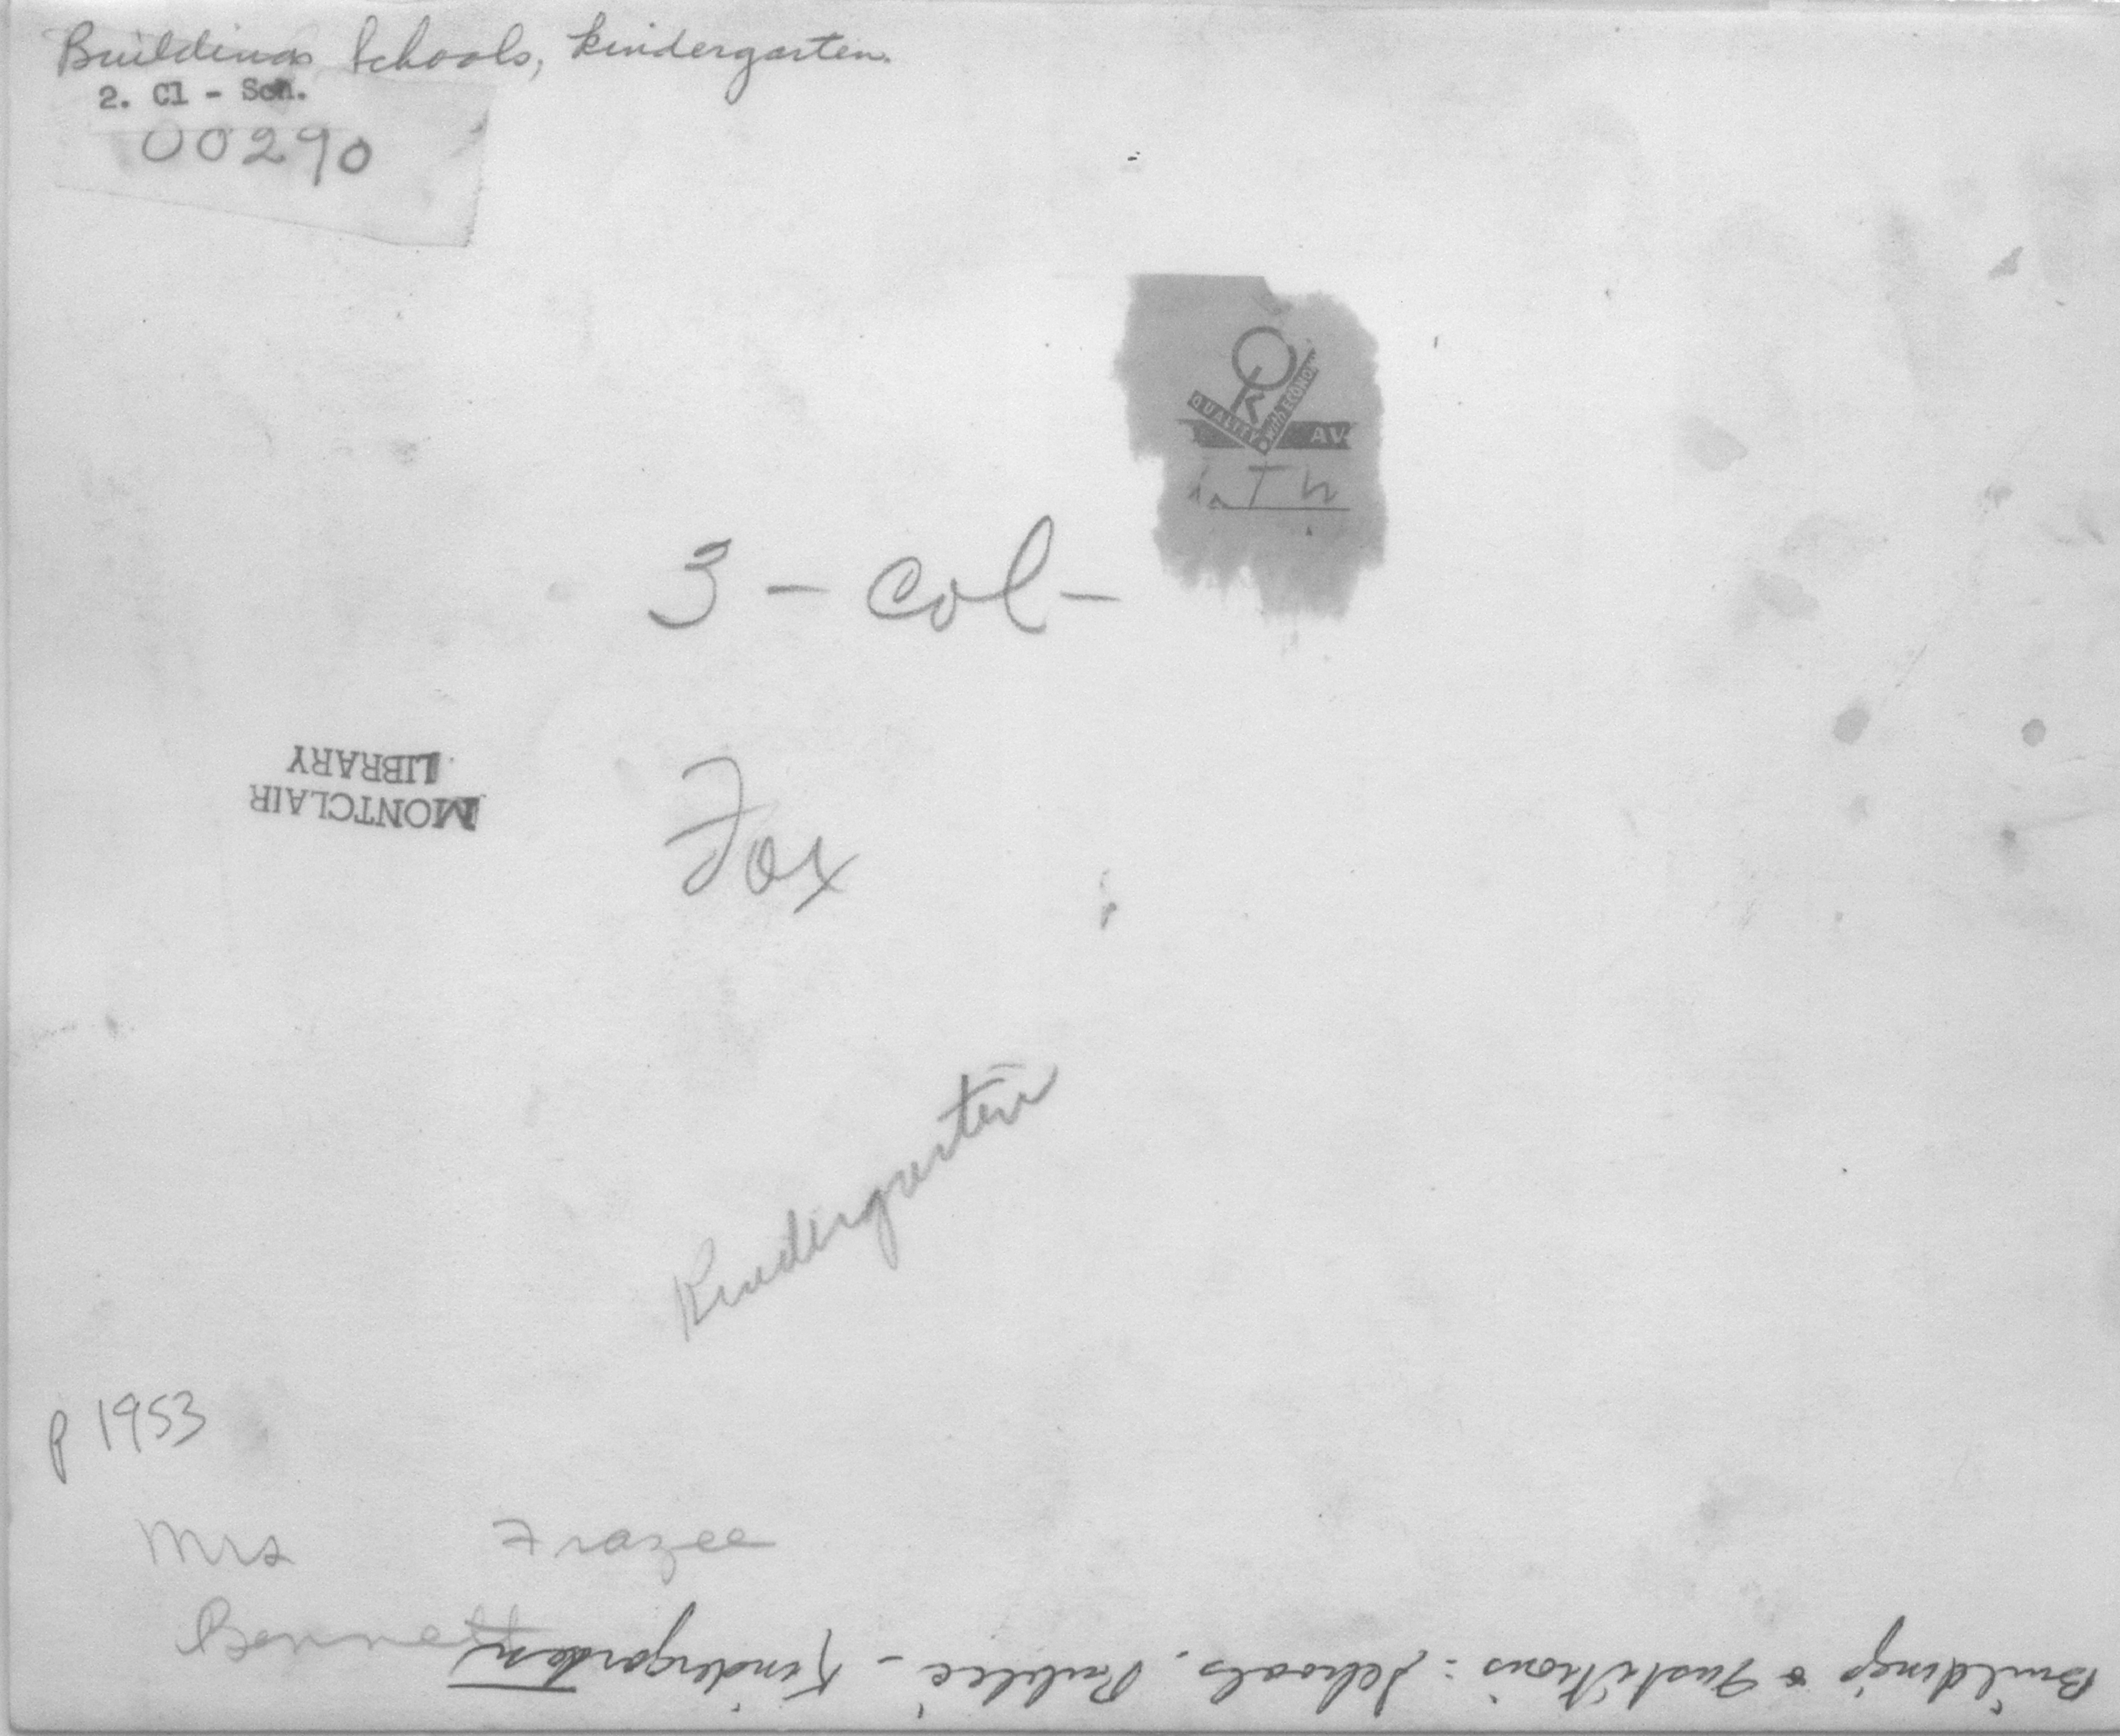 Buildings Schools, kindergarten.
2. Cl - Sch.
00290
OK
QUALITY with ECONOMY
AV
3 - col -
LIBRARY
MONTCLAIR
Fox
Kindergarten
P 1953
Mrs Frazee
Bennett
Buildings & Institutions: Schools, Public - Kindergarten